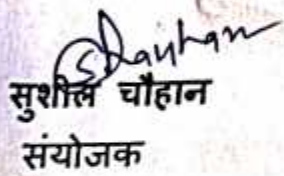 SChauhan
सुशील चौहान
संयोजक